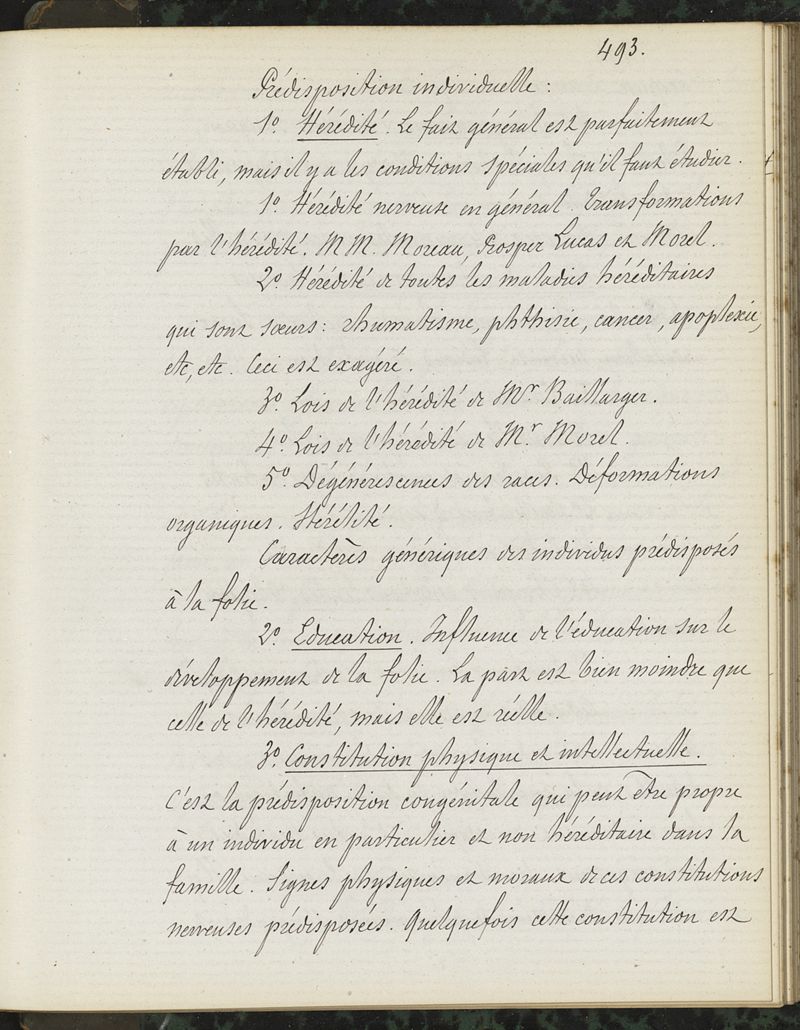 493.
Prédisposition individuelle :
1º. Hérédité. Le fait général est parfaitement
établi, mais il y a les conditions spéciales qu'il faut étudier.
1º. Hérédité nerveuse en général. Transformations
par l'hérédité. MM. Moreau, Prosper Lucas et Morel.
2º. Hérédité de toutes les maladies héréditaires
qui sont sœurs : rhumatisme, phthisie, cancer, apoplexie,
etc, etc. Ceci est exagéré.
3º. Lois de l'hérédité de Mr Baillarger.
4º. Lois de l'hérédité de Mr. Morel.
5º. Dégénérescences des races. Déformations
organiques. Stérélité.
Caractères génériques des individus prédisposés
à la folie.
2º. Education. Influence de l'éducation sur le
développement de la folie. La part est bien moindre que
celle de l'hérédité, mais elle est réelle.
3º. Constitution physique et intellectuelle.
C'est la prédisposition congénitale qui peut être propre
à un individu en particulier et non héréditaire dans la
famille. Signes physiques et moraux de ces constitutions
nerveuses prédisposées. Quelquefois cette constitution est